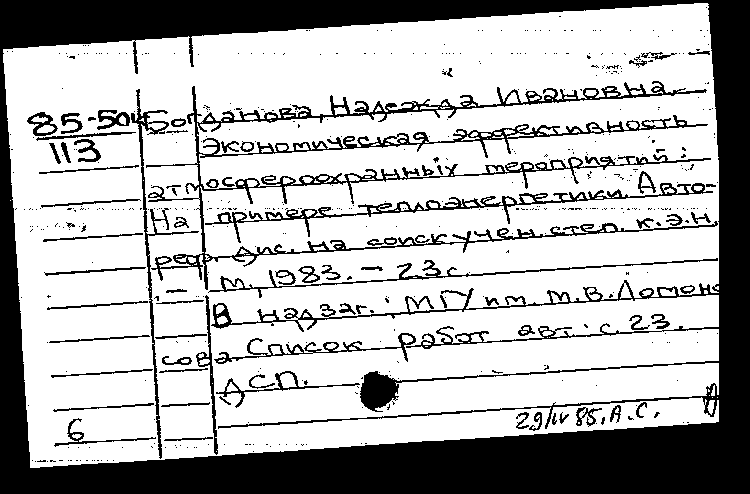 85-504 Богданова, Надежда Ивановна.
113 Экономическая эффективность
атмосфероохранных мероприятий:
На примере теплоэнергетики. Авто-
реф. дис. на соиск. учен. степ. к.э.н.
- М., 1983. - 23 с.
В надзаг.: МГУ им. М.В. Ломоно
сова. Список работ авт.: с. 23.
ДСП.
29/IV 85. А.С.
6